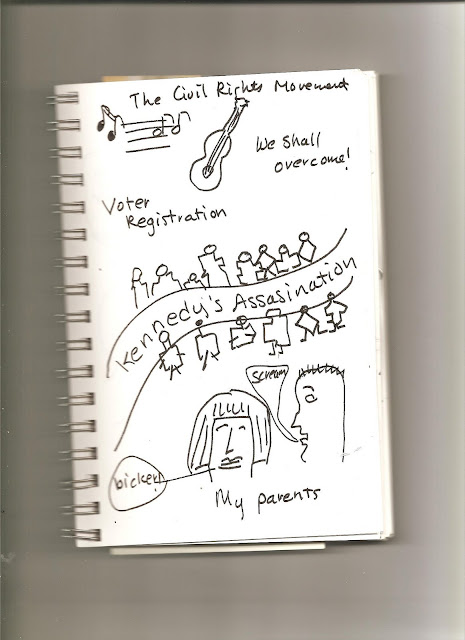 The Civil Rights Movement
We Shall
overcome!
Voter
Registration
Kennedy's Assasination
scream
bicker!
My parents